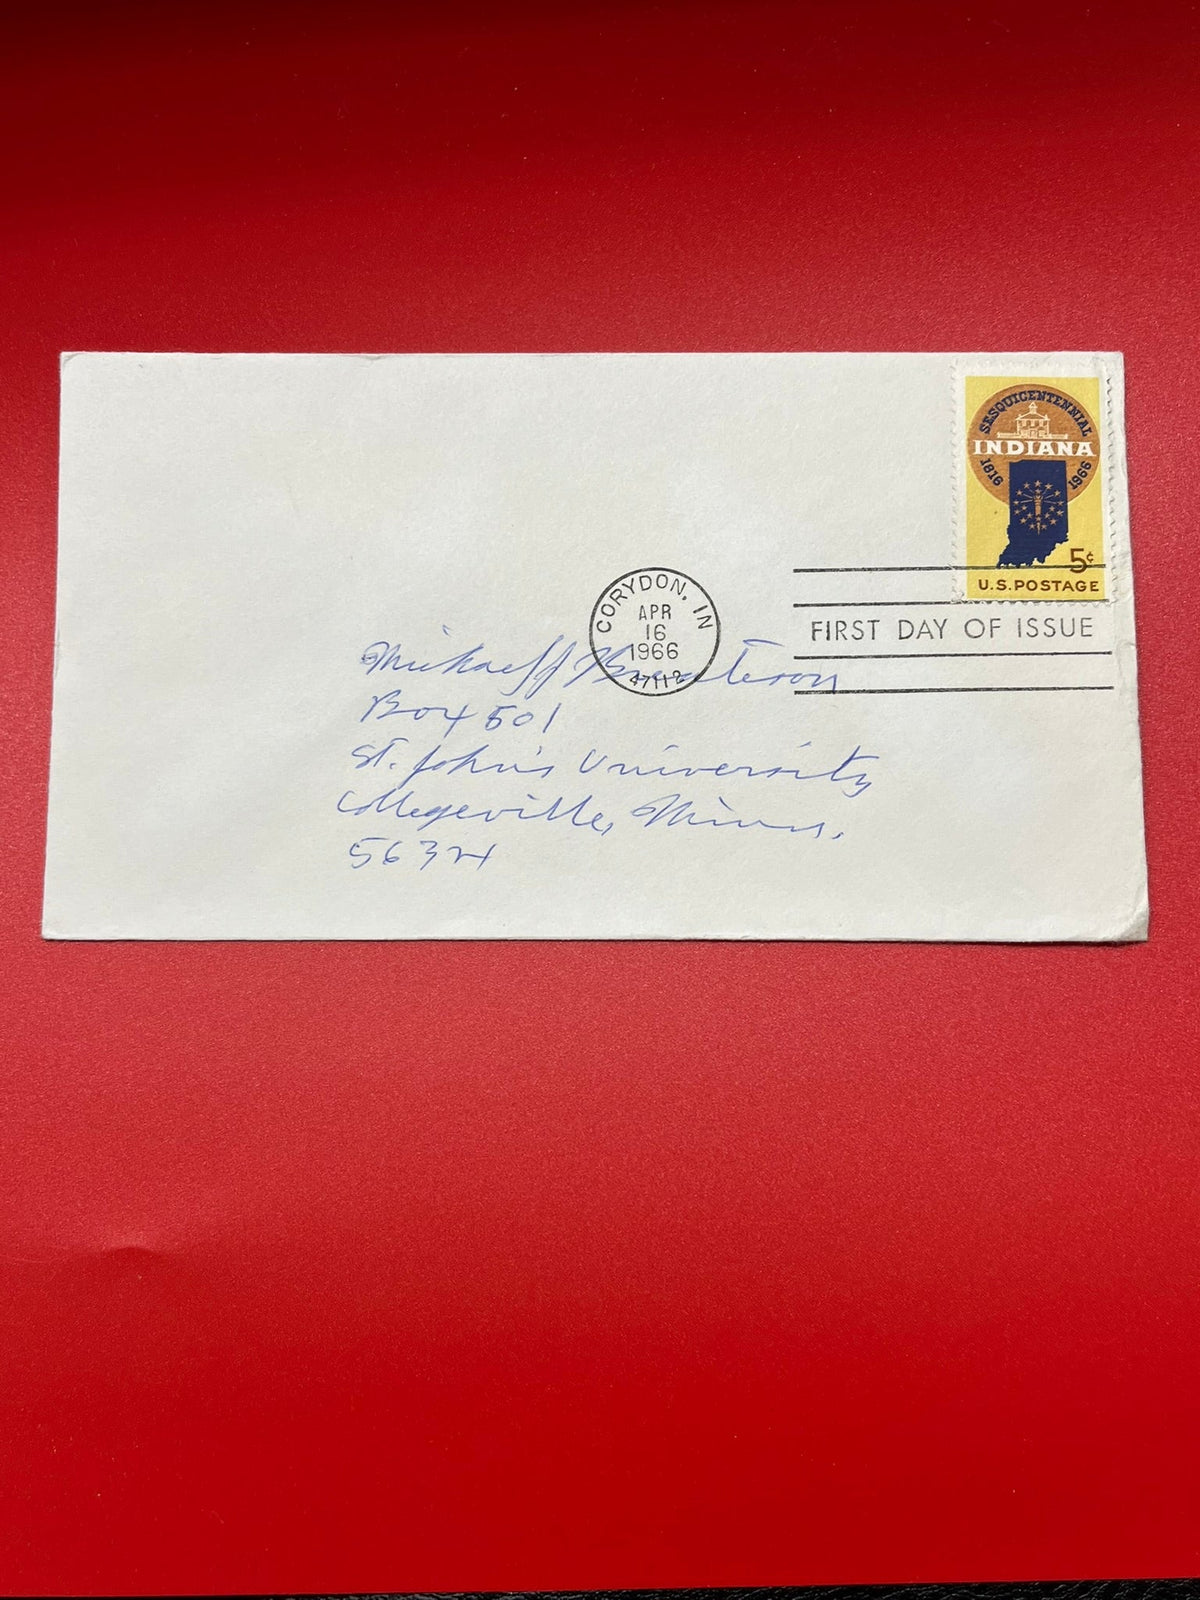 SESQUICENTENNIAL
INDIANA
1816 1966
5¢
U.S. POSTAGE
CORYDON, IN
APR
16
1966
47112
FIRST DAY OF ISSUE
Michael J
Box 501
St. John's University
Collegeville, Minn.
56321